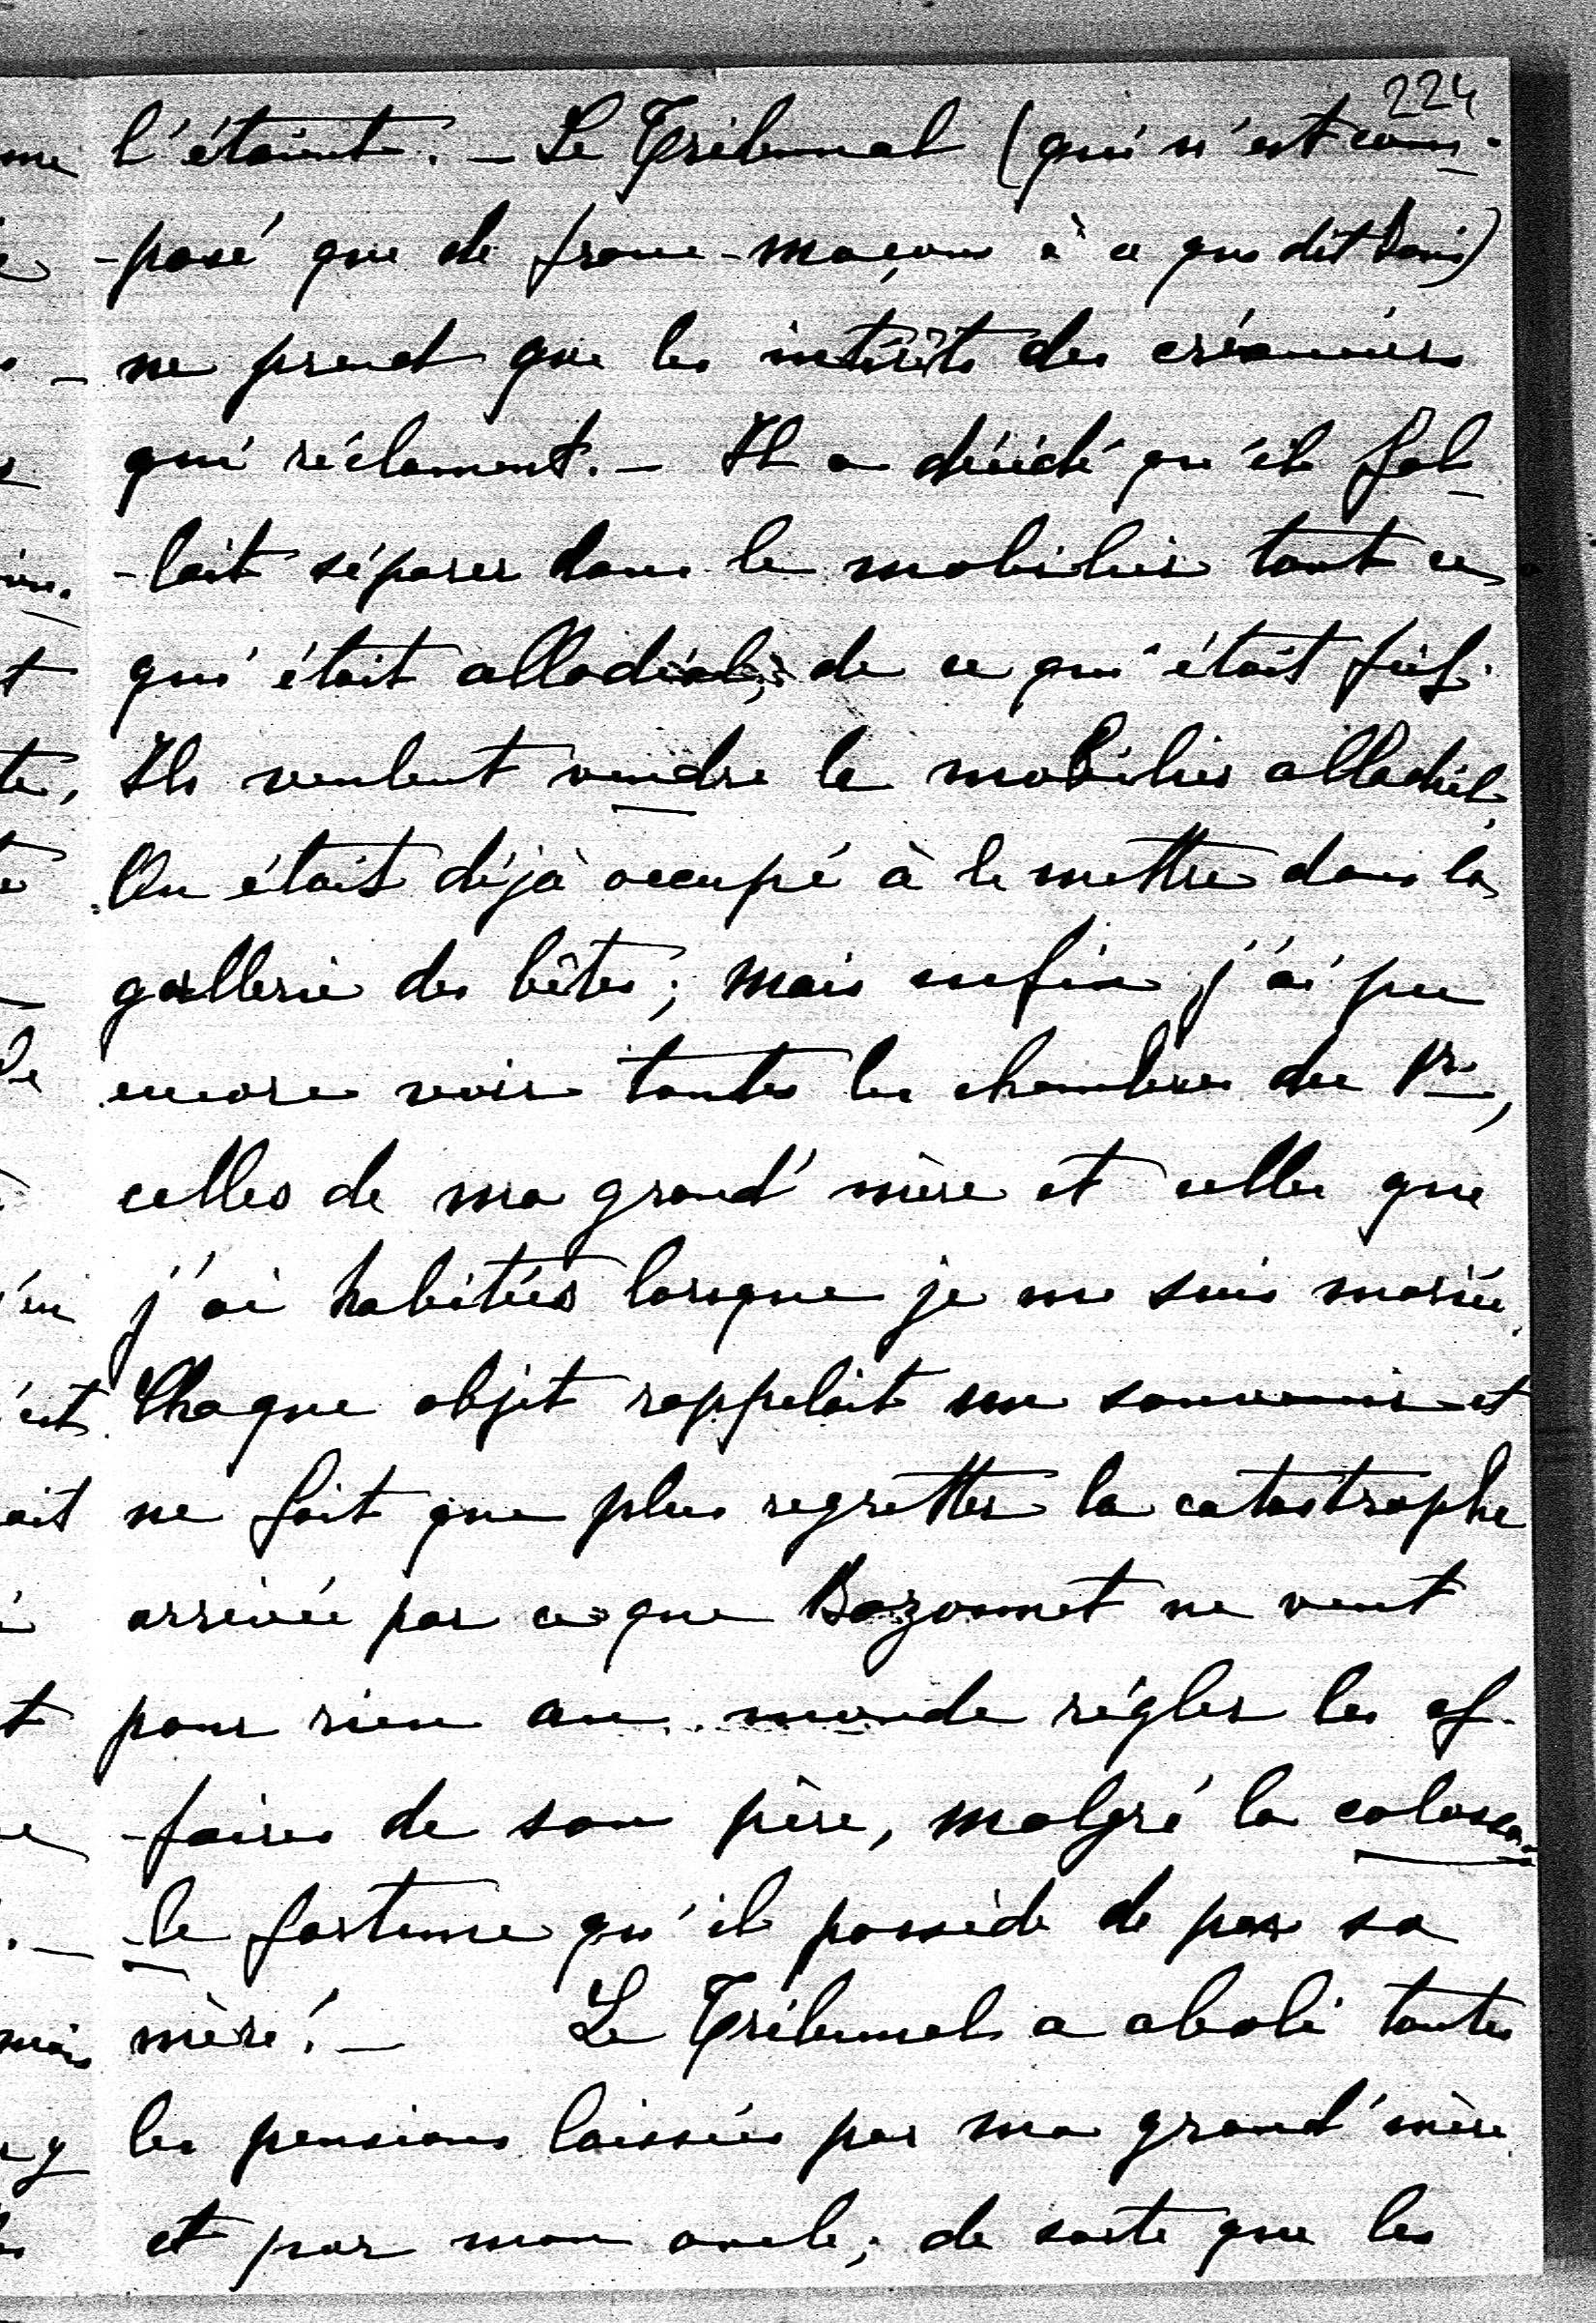 224
l'étaient. — Le Tribunal (qui n'est com-
-posé que de franc-maçons à ce que dit)
ne prend que les intérêts des créanciers
qui réclament. — Il a décidé qu'il fal-
-lait séparer dans le mobilier tout ce
qui était allodial, de ce qui était fief.
Ils veulent vendre le mobilier allodial.
On était déjà occupé à le mettre dans la
gallerie des bêtes ; mais enfin j'ai pu
encore voir toutes les chambres du Pce,
celles de ma grand'mère et celles que
j'ai habitées lorsque je me suis mariée.
Chaque objet rappelait un souvenir et
ne fait que plus regretter la catastrophe
arrivée par ce que Bozonnet ne veut
pour rien au monde régler les af-
-faires de son père, malgré la colossa-
-le fortune qu'il possède de par sa
mère ! — Le Tribunal a aboli toutes
les pensions laissées par ma grand'mère
et par mon oncle ; de sorte que les